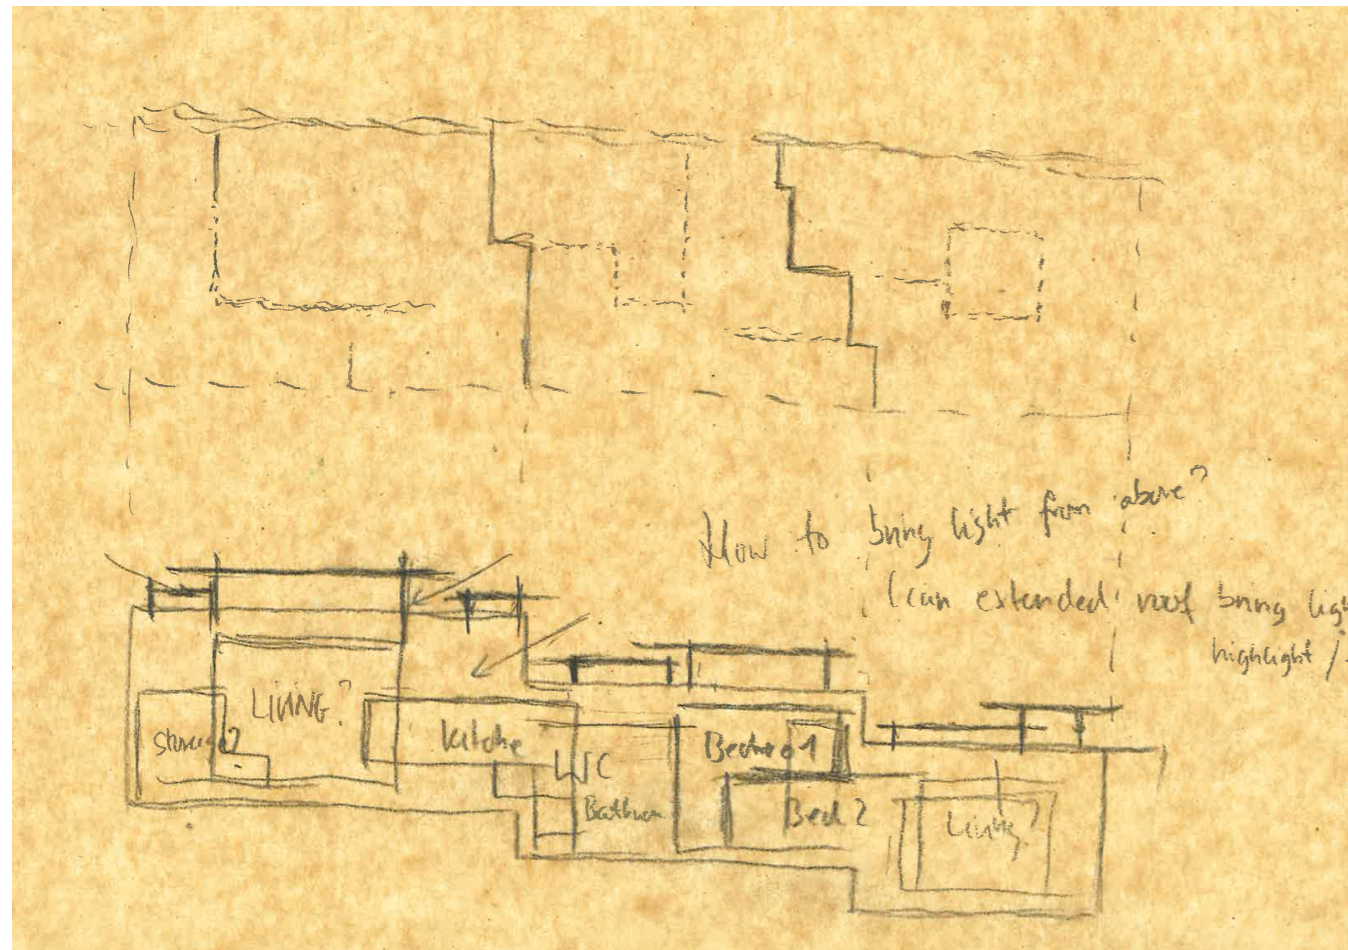 How to bring light from above?
(can extended roof bring ligh
highlight /
LIVING?
Storage?
kitche
WC
Bathroom
Bedroo 1
Bed 2
Living?